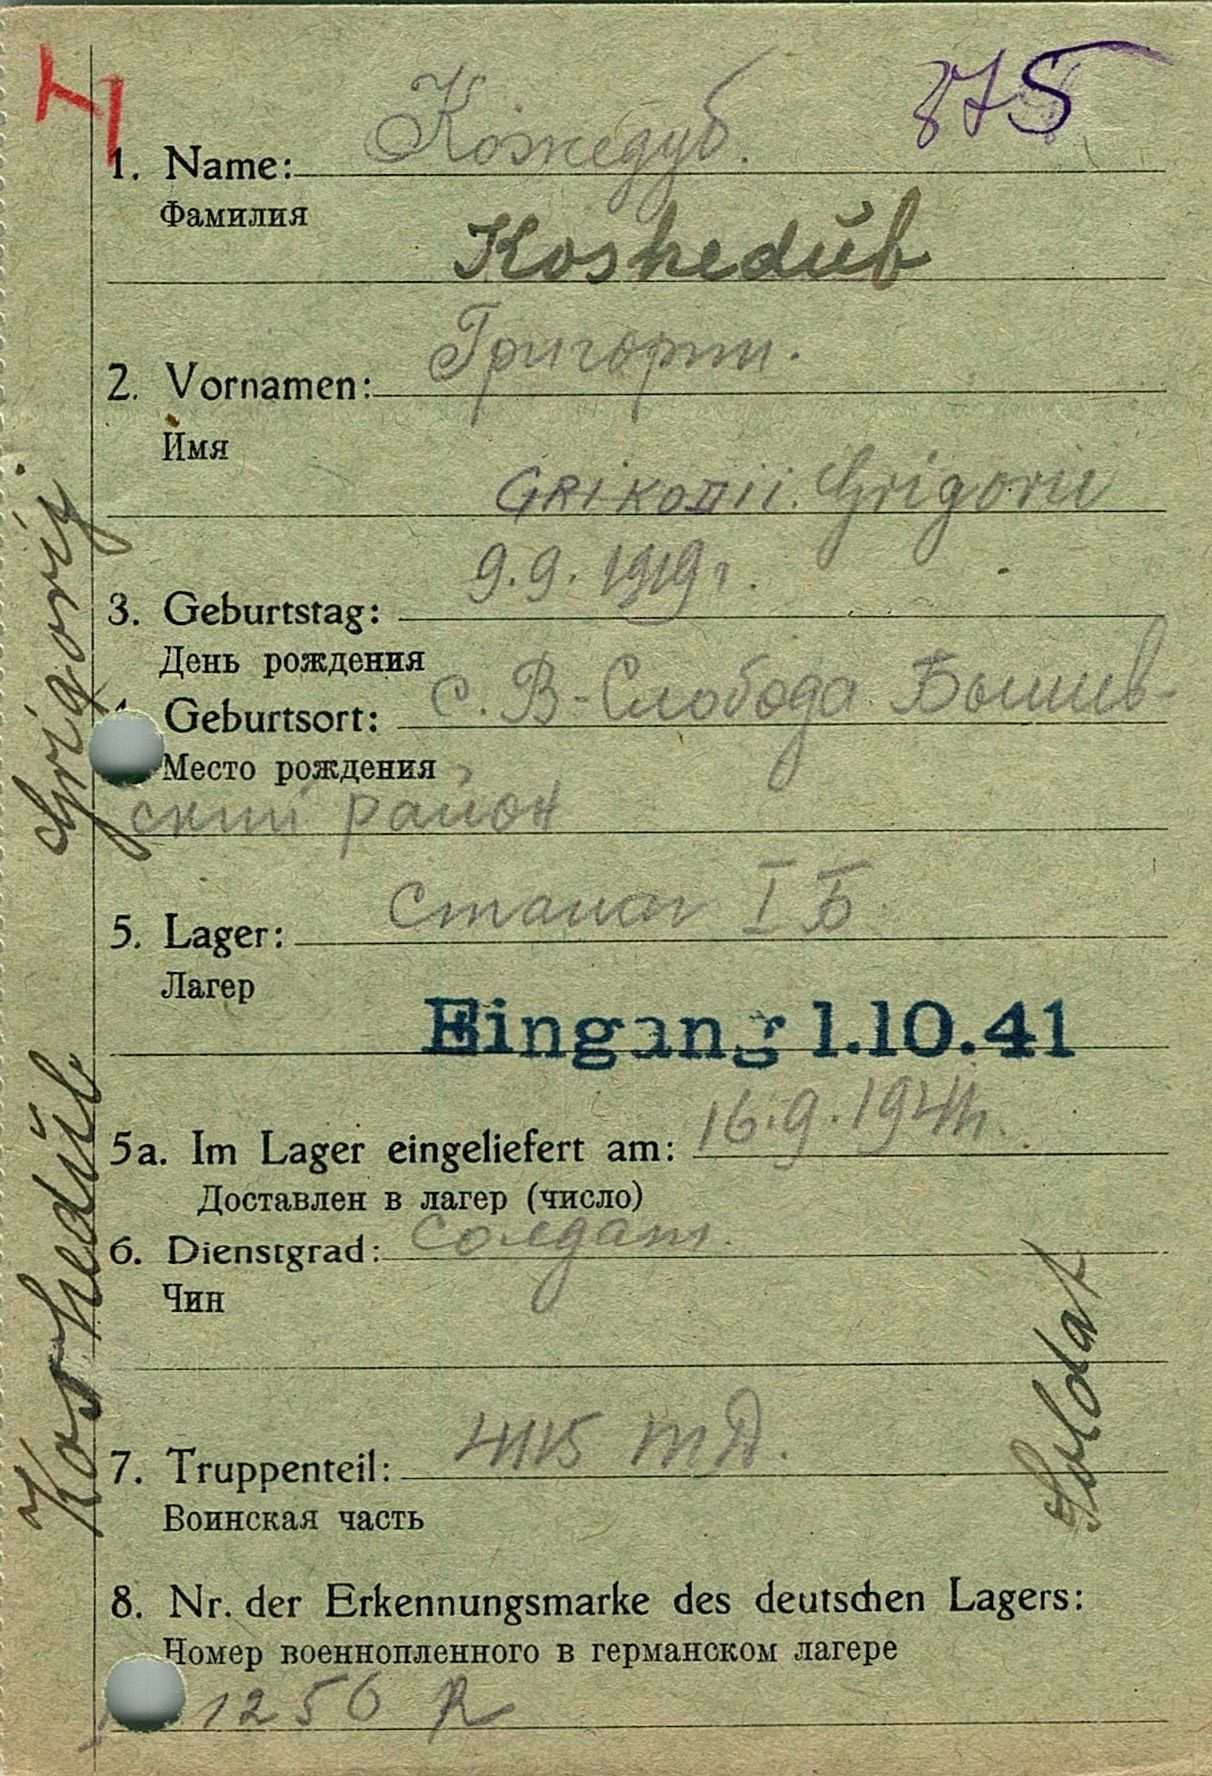 875
Кожедуб.
1. Name:
Фамилия
Koshedŭb
Григории.
2. Vornamen:
Имя
Grigorii
9.9.1919 г.
3. Geburtstag:
День рождения
с. В-Слобода Бышив-
Geburtsort:
Место рождения
ский район
Сталаг I Б
5. Lager:
Лагер
Eingang 1.10.41
5a. Im Lager eingeliefert am: 16.9.1941
Доставлен в лагер (число)
6. Dienstgrad: солдат.
Чин
7. Truppenteil:
Воинская часть
8. Nr. der Erkennungsmarke des deutschen Lagers:
Номер военнопленного в германском лагере
1256
Koshedŭb Grigorij
Soldat